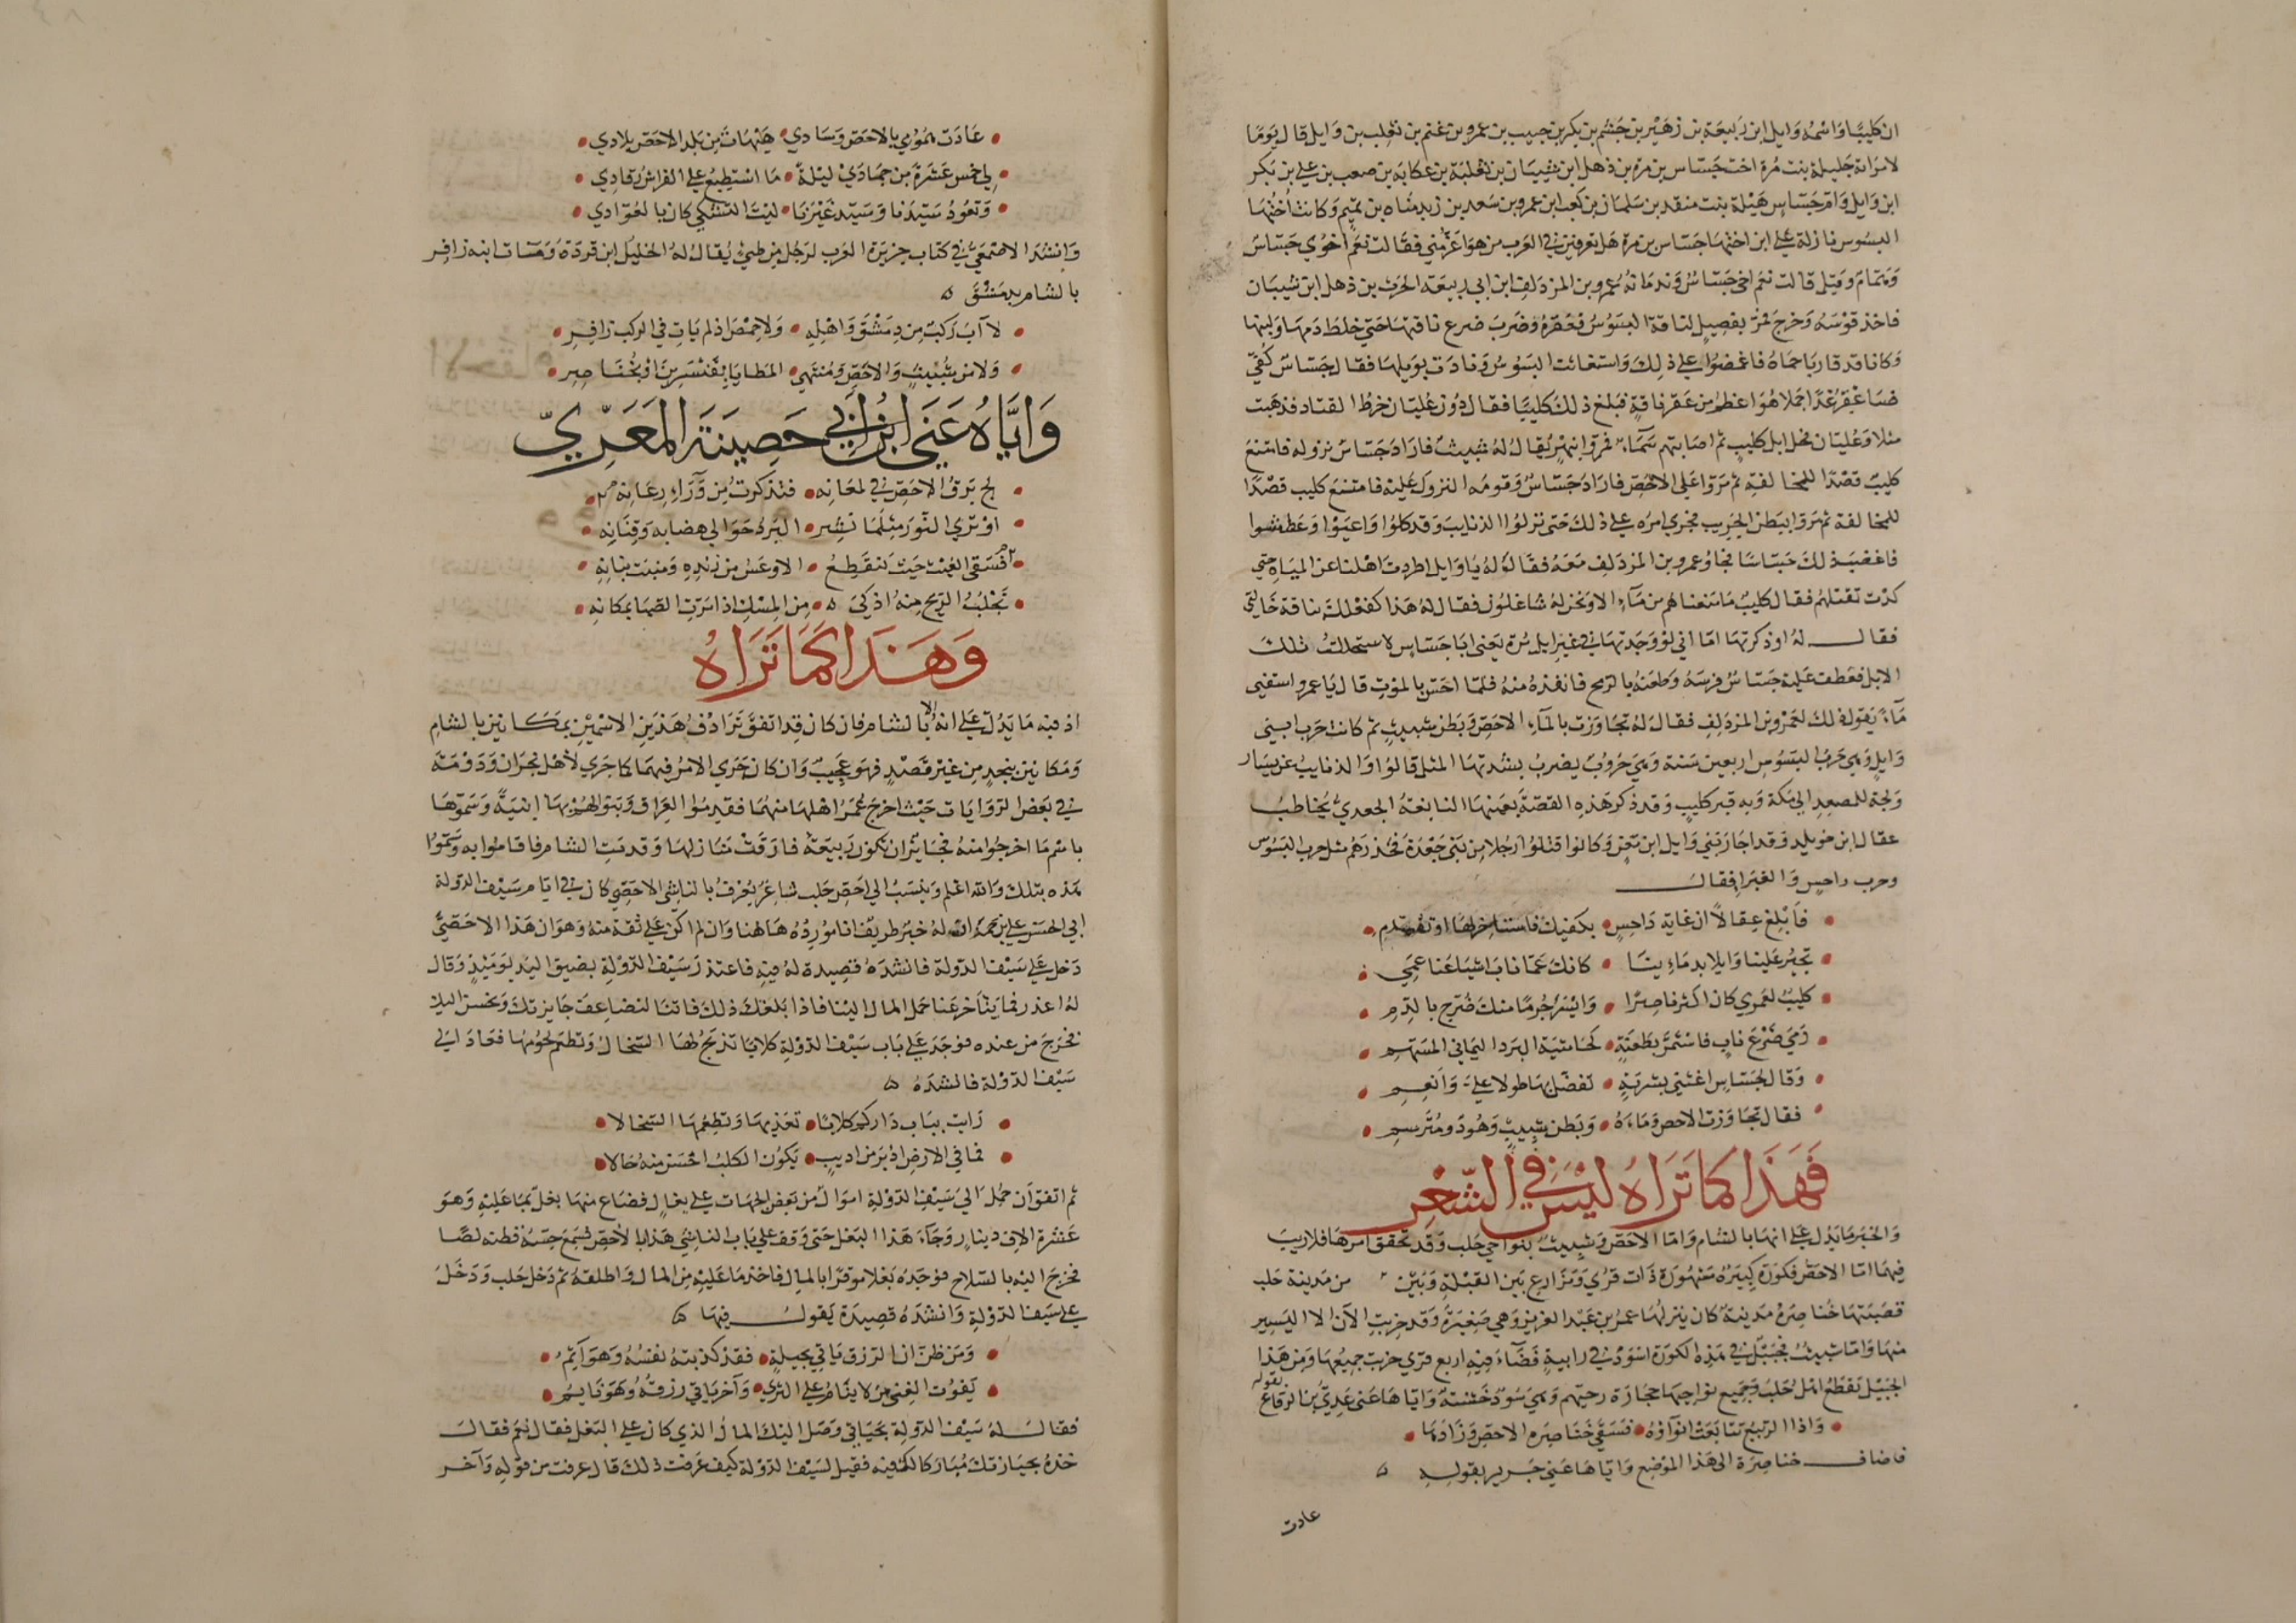 ان كليبًا واسمه وايل ابن ربيعة بن زهير بن جشم بن بكر بن حبيب بن عمرو بن غنم بن تغلب بن وايل قال يومًا
لامراته جليلة بنت مرة اخت جساس بن مرة بن ذهل ابن شيبان بن ثعلبة بن عكابة بن صعب بن علي بن بكر
ابن وايل وام جساس هيلة بنت منقد بن سلمان بن كعب ابن عمرو بن سعد بن زيد مناه بن تميم وكانت اختها
البسوس نازلة على ابن اختها جساس بن مرة هل تعرفين في العرب من هو اعز مني فقالت نعم اخوي جساس
وهمام وقيل قالت نعم اخي جساس وندمانه عمرو بن المزدلف ابن ابي ربيعة الحرث بن ذهل ابن شيبان
فاخذ قوسه وخرج فمر بفصيل لناقة البسوس فعقره وضرب ضرع ناقتها حتى خلط دمها ولبنها
وكانا قد قاربا حماه فاغمضوا على ذلك واستغاثت البسوس ونادت بويلها فقال جساس كفي
فساعقر غدًا جملا هو اعظم من عقر ناقة فبلغ ذلك كليبًا فقال دون غليان خرط القتاد فذهبت
مثلا وغليان فحل ابل كليب ثم اصابتهم سماء فمروا بنهر يقال له شبيث فاراد جساس نزوله فامتنع
كليب قصدًا للمخالفة ثم مروا على الاحص فاراد جساس وقومه النزول عليه فامتنع كليب قصدًا
للمخالفة ثم مروا ببطن الجريب فجرى امره على ذلك حتى نزلوا الذنايب وقد كلوا واعيوا وعطشوا
فاغضب ذلك جساسًا فجا وعمرو بن المزدلف معه فقال له يا وايل اطردت اهلنا عن المياه حتي
كدت تقتلهم فقال كليب ما منعناهم من ماء الا ونحن له شاغلون فقال له هذا كفعلك بناقة خالتي
فقال له او ذكرتها اما اني لو وجدتها في غير ابل مرة يعني ابا جساس لاستحللت تلك
الابل فعطف عليه جساس فرسه وطعنه بالرمح فانفذه منه فلما احس بالموت قال يا عمرو اسقني
ماء يقول ذلك لعمرو بن المزدلف فقال له تجاوزت بالماء الاحص وبطن شبيث ثم كانت حرب ابني
وايل وهي حرب البسوس اربعين سنة وهي حروب يضرب بشدتها المثل قالوا والذنايب عن يسار
ولجة للمصعد الى مكة وبه قبر كليب وقد ذكر هذه القصة بعينها النابغة الجعدي يخاطب
عقال ابن خويلد وقد اجار بني وايل ابن معن وكانوا قتلوا رجلا من بني جعدة فحذرهم مثل حرب البسوس
وحرب داحس والغبرا فقال
فابلغ عقالًا ان غاية داحس • بكفيك فاستاخر لها او تقدم
تجير علينا وايلا بدماءينا • كانك عما ناب اشياعنا عمي
كليب لعمري كان اكثر ناصرًا • وايسر جرمًا منك ضرج بالدم
رمى ضرع ناب فاستمر بطعنة • كحاشية البرد اليماني المسهم
وقال لجساس اغثني بشربة • تفضل بها طولا علي وانعم
فقال تجاوزت الاحص وماءه • وبطن شبيث وهو ذو مترسم
فهذا كما تراه ليس في الشعر
والخبر ما يدل على انها بالشام واما الاحص وشبيث بنواحي حلب وقد تحقق امرهما فلا ريب
فيهما اما الاحص فكورة كبيرة مشهورة ذات قرى ومزارع بين القبلة وبين من مدينة حلب
قصبتها خناصرة مدينة كان ينزلها عمر بن عبد العزيز وهي صغيرة وقد خربت الآن الا اليسير
منها واما شبيث فجبل في هذه الكورة اسود في رابية فضاء فيه اربع قرى خربت جميعها ومن هذا
الجبل تقطع اهل حلب وجميع نواحيها حجارة رحيهم وهي سود خشنة واياها عنى عدي بن الرقاع بقوله
واذا الربيع تتابعت انواؤه • فسقى خناصرة الاحص وزادها
فاضاف خناصرة الى هذا الموضع واياها عنى جرير بقوله
عادت
عادت همومي بالاحص وسادي • هيهات من بلد الاحص بلادي
لي خمس عشرة من جمادى ليلة • ما استطيع على الفراش رقادي
ونعود سيدنا وسيد غيرنا • ليت التشكي كان بالعوادي
وانشد الاصمعي في كتاب جزيرة العرب لرجل من طيئ يقال له الخليل ابن قردة ومات ابنه زافر
بالشام بدمشق
لا آب ركب من دمشق واهله • ولا حمص اذ لم يات في الركب زافر
ولا من شبيث والاحص ومنتهى • المطايا بقنسرين او بخناصر
واياه عنى ابن ابي حصينة المعري
لج برق الاحص في لمعانه • فتذكرت من وراء رعانه
او ترى النور مثلما نشر • البرد حوالي هضابه وقنانه
فسقى الغيث حيث ينقطع • الاوعس من رنده ومنبت بانه
تجلب الريح منه اذكى • من المسك اذا مرت الصبا بمكانه
وهذا كما تراه
اذ فيه ما يدل على انه الا بالشام فان كان قد اتفق ترادف هذين الاسمين بمكانين بالشام
ومكانين بنجد من غير قصد فهو عجيب وان كان جرى الامر فيهما كما جرى لاهل نجران ودومة
في بعض الروايات حيث اخرج عمر اهلها منهما فقدموا العراق وبنوا لهم بها ابنية وسموها
باسم ما اخرجوا منه فجايز ان تكون ربيعة فارقت منازلها وقدمت الشام فاقاموا به وسموا
هذه بتلك والله اعلم وينسب الى احص حلب شاعر يعرف بالناشي الاحصي كان في ايام سيف الدولة
ابي الحسن علي بن حمدان له خبر طريف انا مورده هاهنا وان لم اكن على ثقة منه وهو ان هذا الاحصي
دخل على سيف الدولة فانشده قصيدة له فيه فاعتذر سيف الدولة بضيق اليد يوميذ وقال
له اعذر فما يتاخر عنا حمل المال الينا فاذا بلغك ذلك فاتنا لنضاعف جايزتك ونحسن اليك
فخرج من عنده فوجد على باب سيف الدولة كلابًا تذبح لها السخال وتطعم لحومها فعاد الى
سيف الدولة فانشده
رايت بباب داركم كلابًا • تغذيها وتطعمها السخالا
فما في الارض ادبر من اديب • يكون الكلب احسن منه حالا
ثم اتفق ان حمل الى سيف الدولة اموال من بعض الجهات على بغال فضاع منها بغل بما عليه وهو
عشرة الاف دينار وجاء هذا البغل حتى وقف على باب الناشي هذا بالاحص فسمع حسه فظنه لصًا
فخرج اليه بالسلاح فوجده بغلا موقرًا بالمال فاخذ ما عليه من المال واطلقه ثم دخل حلب ودخل
على سيف الدولة وانشده قصيدة يقول فيها
ومن ظن ان الرزق ياتي بحيلة • فقد كذبته نفسه وهو آثم
يفوت الغنى من لا ينام على السرى • وآخر ياتي رزقه وهو نايم
فقال له سيف الدولة بحياتي وصل اليك المال الذي كان على البغل فقال نعم فقال
خذه بجيازتك مباركا لك فيه فقيل لسيف الدولة كيف عرفت ذلك قال عرفت من قوله وآخر